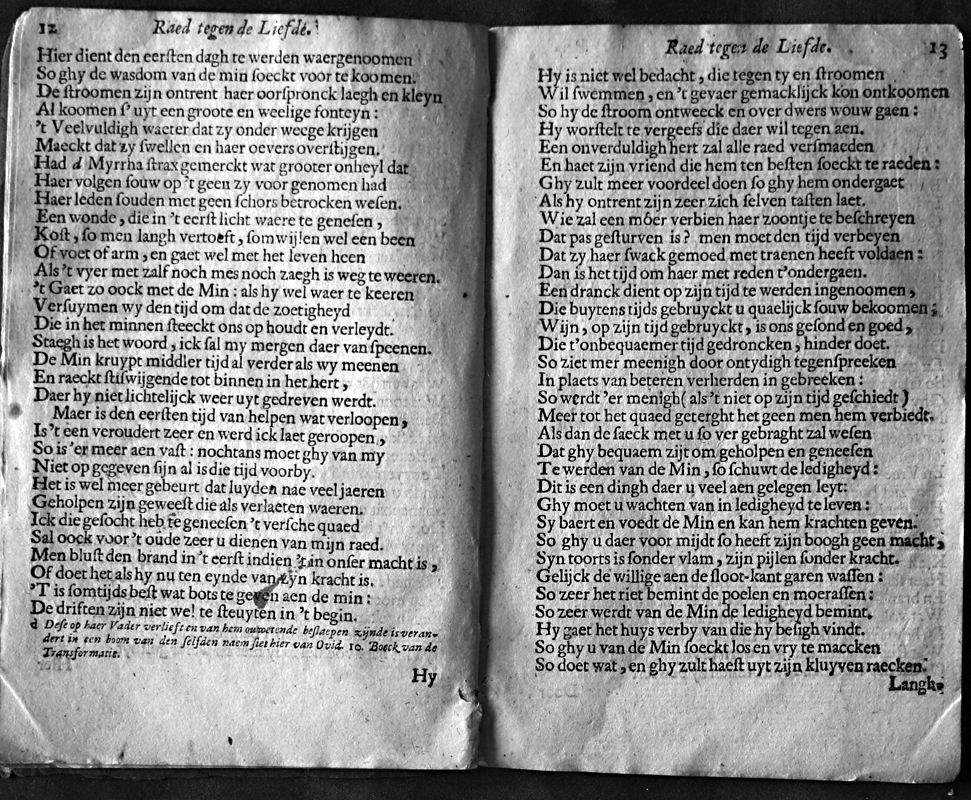 12 Raed tegen de Liefde.
Hier dient den eerſten dagh te werden waergenoomen
So ghy de wasdom van de min ſoeckt voor te koomen.
De ſtroomen zijn ontrent haer oorſpronck laegh en kleyn
Al koomen ſ'uyt een groote en weelige fonteyn:
't Veelvuldigh waeter dat zy onder weege krijgen
Maeckt dat zy ſwellen en haer oevers overſtijgen.
Had d Myrrha ſtrax gemerckt wat grooter onheyl dat
Haer volgen ſouw op 't geen zy voor genomen had
Haer leden ſouden met geen ſchors betrocken weſen.
Een wonde, die in 't eerſt licht waere te geneſen,
Koſt, ſo men langh vertoeft, ſomwijlen wel een been
Of voet of arm, en gaet wel met het leven heen
Als 't vyer met zalf noch mes noch zaegh is weg te weeren.
't Gaet zo oock met de Min: als hy wel waer te keeren
Verſuymen wy den tijd om dat de zoetigheyd
Die in het minnen ſteeckt ons op houdt en verleydt.
Staegh is het woord, ick ſal my mergen daer van ſpeenen.
De Min kruypt middler tijd al verder als wy meenen
En raeckt ſtilswijgende tot binnen in het hert,
Daer hy niet lichtelijck weer uyt gedreven werdt.
Maer is den eerſten tijd van helpen wat verloopen,
Is 't een veroudert zeer en werd ick laet geroopen,
So is 'er meer aen vaſt: nochtans moet ghy van my
Niet op gegeven ſijn al is die tijd voorby.
Het is wel meer gebeurt dat luyden nae veel jaeren
Geholpen zijn geweeſt die als verlaeten waeren.
Ick die geſocht heb te geneeſen 't verſche quaed
Sal oock voor 't oude zeer u dienen van mijn raed.
Men bluſt den brand in 't eerſt indien 't in onſer macht is,
Of doet het als hy nu ten eynde van zyn kracht is.
'T is ſomtijds beſt wat bots te geven aen de min:
De driften zijn niet wel te ſteuyten in 't begin.
d Deſe op haer Vader verlieft en van hem onwetende beſlaepen zijnde is veran-
dert in een boom van den ſelfden naem ſiet hier van Ovid. 10. Boeck van de
Transformatie.
Hy
Raed tegen de Liefde. 13
Hy is niet wel bedacht, die tegen ty en ſtroomen
Wil ſwemmen, en 't gevaer gemacklijck kon ontkoomen
So hy de ſtroom ontweeck en over dwers wouw gaen:
Hy worſtelt te vergeefs die daer wil tegen aen.
Een onverduldigh hert zal alle raed verſmaeden
En haet zijn vriend die hem ten beſten ſoeckt te raeden:
Ghy zult meer voordeel doen ſo ghy hem ondergaet
Als hy ontrent zijn zeer zich ſelven taſten laet.
Wie zal een móer verbien haer zoontje te beſchreyen
Dat pas geſturven is? men moet den tijd verbeyen
Dat zy haer ſwack gemoed met traenen heeft voldaen:
Dan is het tijd om haer met reden t'ondergaen.
Een dranck dient op zijn tijd te werden ingenoomen,
Die buytens tijds gebruyckt u quaelijck ſouw bekoomen;
Wijn, op zijn tijd gebruyckt, is ons geſond en goed,
Die t'onbequaemer tijd gedroncken, hinder doet.
So ziet mer meenigh door ontydigh tegenſpreeken
In plaets van beteren verherden in gebreeken:
So werdt 'er menigh (als 't niet op zijn tijd geſchiedt)
Meer tot het quaed geterght het geen men hem verbiedt.
Als dan de ſaeck met u ſo ver gebraght zal weſen
Dat ghy bequaem zijt om geholpen en geneeſen
Te werden van de Min, ſo ſchuwt de ledigheyd:
Dit is een dingh daer u veel aen gelegen leyt:
Ghy moet u wachten van in ledigheyd te leven:
Sy baert en voedt de Min en kan hem krachten geven.
So ghy u daer voor mijdt ſo heeft zijn boogh geen macht,
Syn toorts is ſonder vlam, zijn pijlen ſonder kracht.
Gelijck de willige aen de ſloot-kant garen waſſen:
So zeer het riet bemint de poelen en moeraſſen:
So zeer werdt van de Min de ledigheyd bemint.
Hy gaet het huys verby van die hy beſigh vindt.
So ghy u van de Min ſoeckt los en vry te maecken
So doet wat, en ghy zult haeſt uyt zijn kluyven raecken.
Langh.